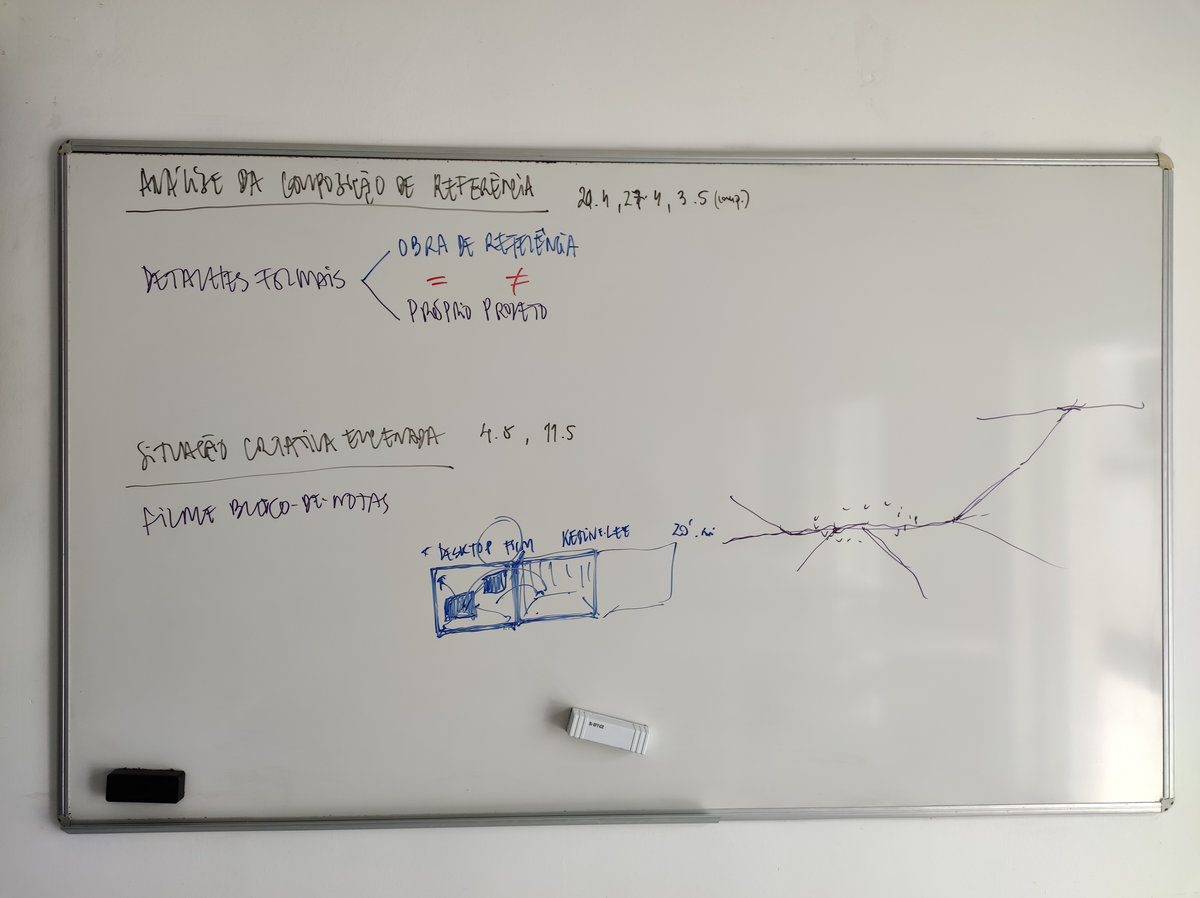 ANÁLISE DA COMPOSIÇÃO DE REFERÊNCIA
20.4, 27.4, 3.5 (comp.)
OBRA DE REFERÊNCIA
DETALHES FORMAIS
= ≠
PRÓPRIO PROJETO
SITUAÇÃO CRIATIVA ENCENADA 4.5, 11.5
FILME BLOCO-DE-NOTAS
DESKTOP FILM
20'